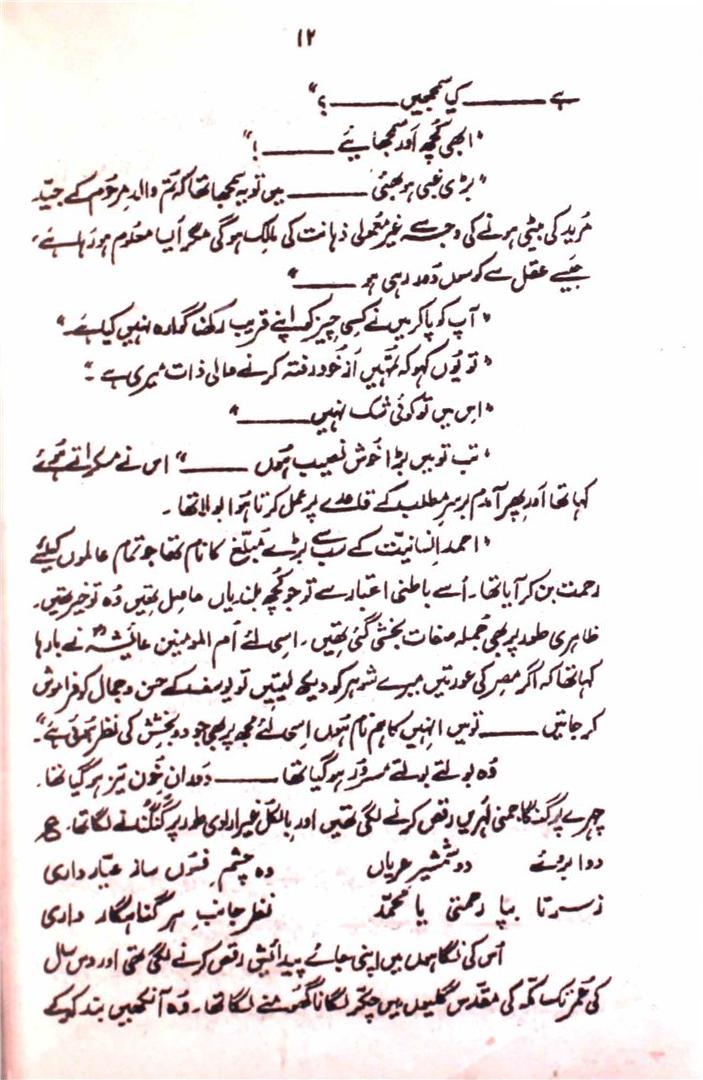 ۱۲
ہے ——— کیا سمجھیں ——— ؟"
"ابھی کچھ اور سمجھائیے ——— !"
"بڑی غبی ہو بھئی ——— میں تو یہ سمجھا تھا کہ تم والد مرحوم کے جیّد
مُرید کی بیٹی ہونے کی وجہ سے غیر معمولی ذہانت کی مالک ہوگی مگر ایسا معلوم ہو رہا ہے،
جیسے عقل سے کوسوں دُور رہی ہو ———"
"آپ کو پا کر میں نے کسی چیز کو اپنے قریب رکھنا گوارہ نہیں کیا ہے۔"
"تو یُوں کہو کہ تمہیں از خود رفتہ کرنے والی ذات میری ہے۔"
"اس میں تو کوئی شک نہیں ———"
"تب تو میں بڑا خوش نصیب ہوں ———" اس نے مسکراتے ہوئے
کہا تھا اور پھر آمدم برسرِ مطلب کے قاعدے پر عمل کرتا ہوا بولا تھا۔
"احمد انسانیت کے سب سے بڑے مُبلّغ کا نام تھا جو تمام عالموں کیلئے
رحمت بن کر آیا تھا۔ اُسے باطنی اعتبار سے تو جو کچھ بلندیاں حاصل تھیں وُہ تو خیر تھیں۔
ظاہری طور پر بھی جُملہ صفات بخشی گئی تھیں۔ اسی لئے اُم المومنین عائشہؓ نے بارہا
کہا تھا کہ اگر مصر کی عورتیں میرے شوہر کو دیکھ لیتیں تو یوسف کے حسن و جمال کو فراموش
کر جاتیں ——— تو میں انہیں کا ہم نام ہوں اسی لئے مجھ پر بھی جود و بخشش کی نظر ہوئی ہے"۔
وُہ بولتے بولتے مسرور ہو گیا تھا ——— دَورانِ خُون تیز ہو گیا تھا۔
چہرے پر گنگا جمنی لہریں رقص کرنے لگی تھیں اور بالکل غیر ارادی طور پر گنگنانے لگا تھا۔ ؏
دو ابروئے دو شمشیر عریاں وہ چشمِ فسُوں ساز عیّار داری
ز سر تا بپا رحمتی یا محمّد نظر جانبِ ہر گناہگار داری
اُس کی نگاہوں میں اپنی جائے پیدائش رقص کرنے لگی تھی اور دس سال
کی عُمر تک مکّہ کی مقدّس گلیوں میں چکّر لگانا گھومنے لگا تھا۔ وُہ آنکھیں بند کرکے